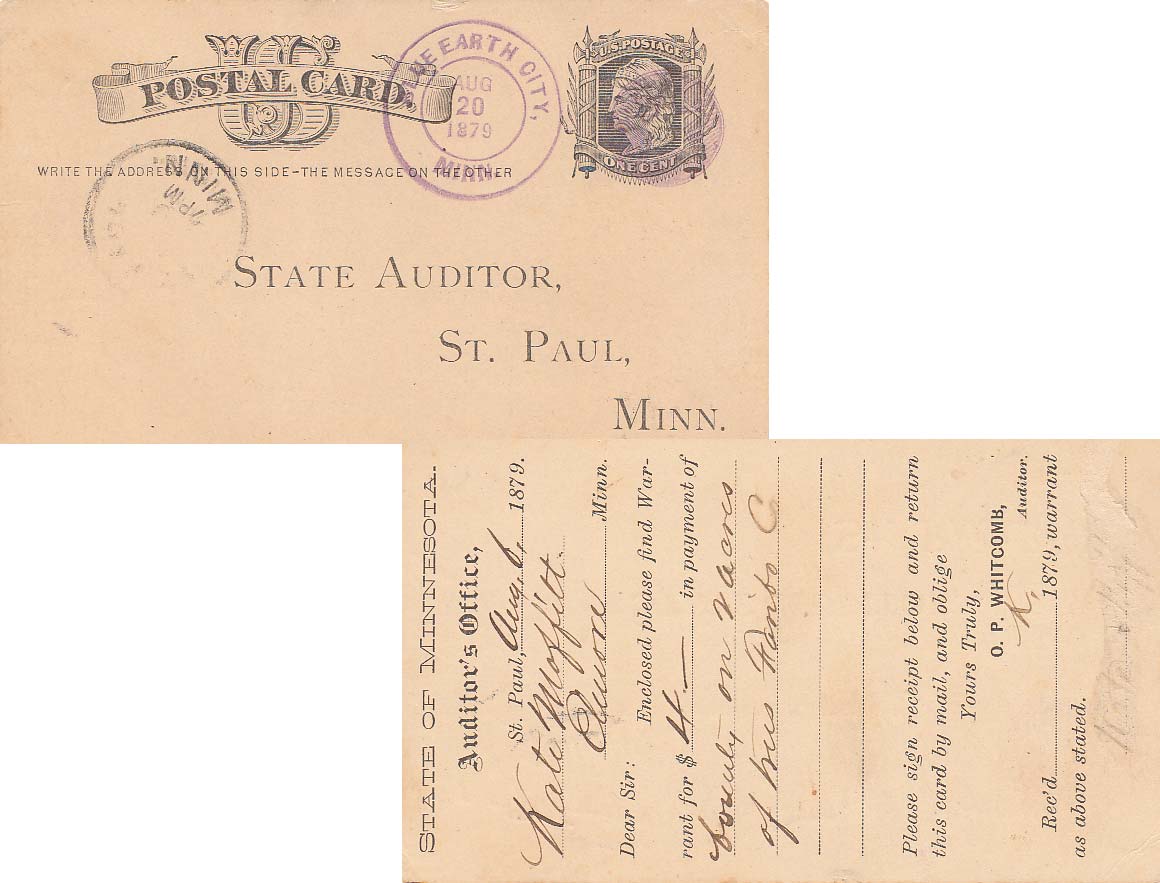 US
POSTAL CARD.
WRITE THE ADDRESS ON THIS SIDE-THE MESSAGE ON THE OTHER
BLUE EARTH CITY,
AUG
20
1879
MINN.
U.S. POSTAGE
ONE CENT
MINN.
7PM
STATE AUDITOR,
ST. PAUL,
MINN.
STATE OF MINNESOTA.
Auditor's Office,
St. Paul, Aug. 6, 1879.
Kate Moffitt
Minn.
Dear Sir: Enclosed please find War-
rant for $ 4.— in payment of
bounty on 2 acres
of trees Faribo C
Please sign receipt below and return
this card by mail, and oblige
Yours Truly,
O. P. WHITCOMB,
K, Auditor.
Rec'd 1879, warrant
as above stated.